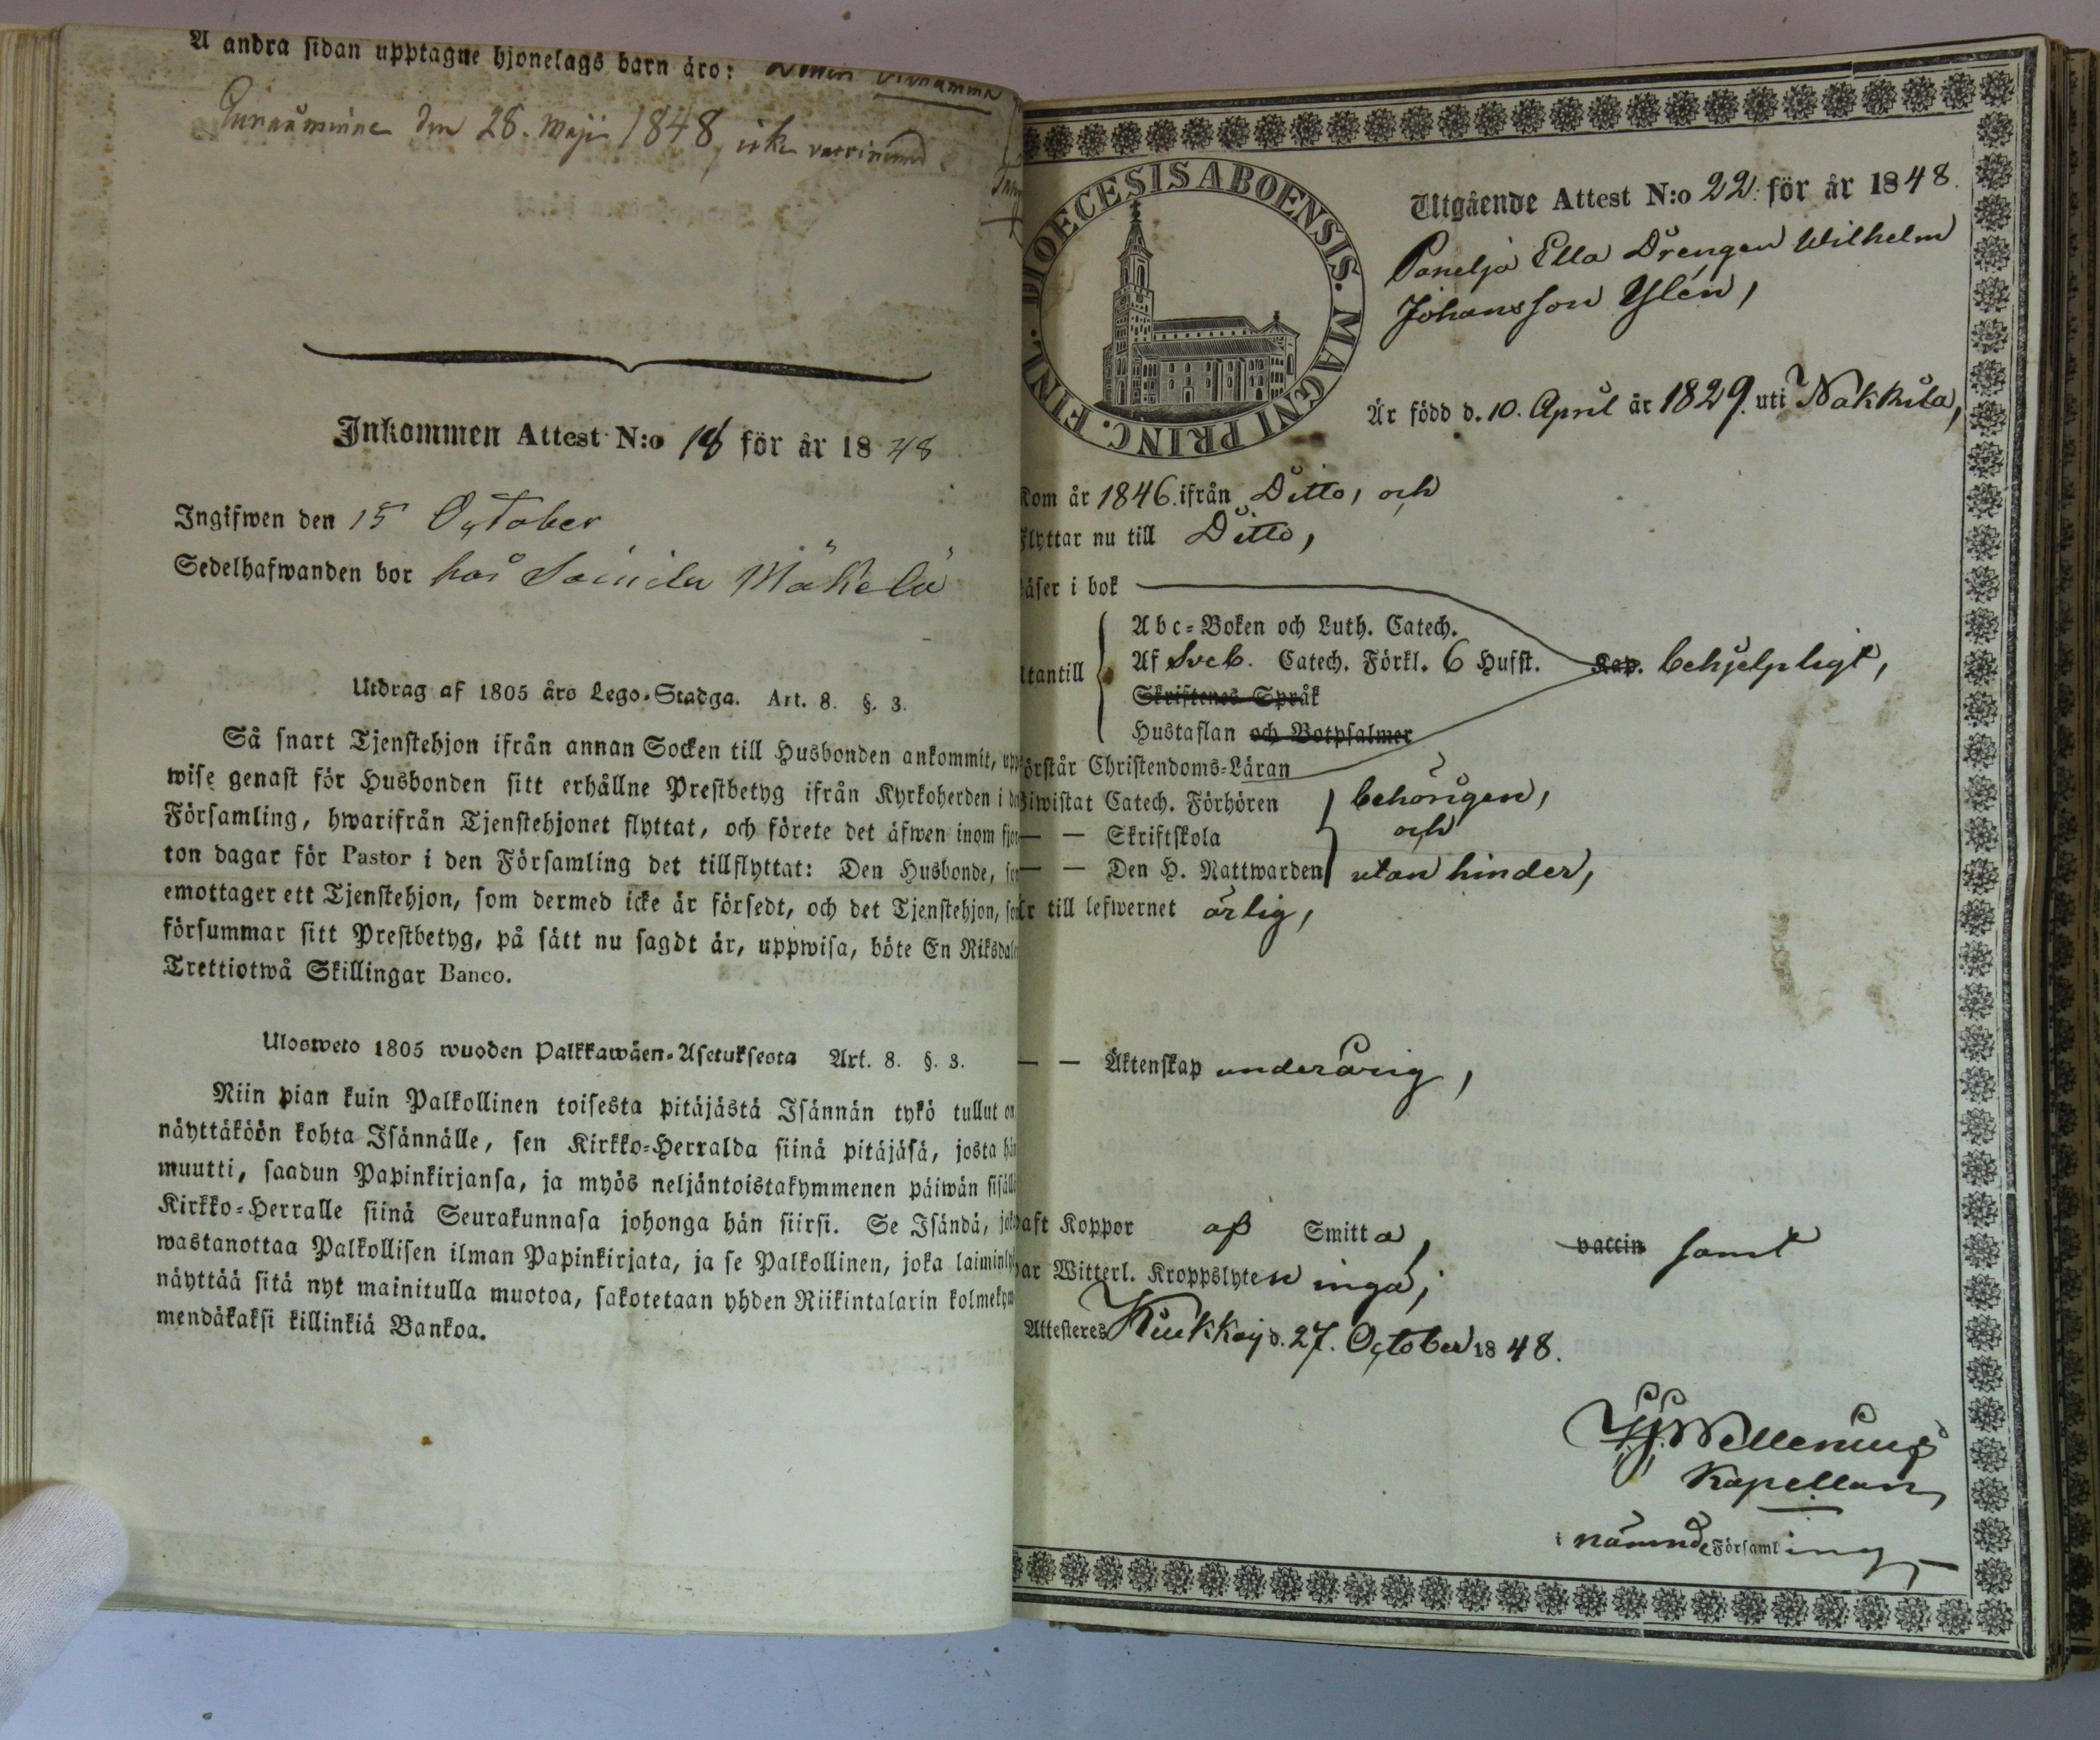 A andra sidan upptagne hjonelags barn äro:
den 28. Maji 1848
Inkommen Attest N:o 18 för år 1848
Ingifwen den 15 October
Sedelhafwanden bor hos Mäkelä
Utdrag af 1805 års Lego-Stadga. Art. 8. §. 3.
Så snart Tjenstehjon ifrån annan Socken till Husbonden ankommit, upp
wise genast för Husbonden sitt erhållne Prestbetyg ifrån Kyrkoherden i de
Församling, hwarifrån Tjenstehjonet flyttat, och förete det äfwen inom fjor
ton dagar för Pastor i den Församling det tillflyttat: Den Husbonde, som
emottager ett Tjenstehjon, som dermed icke är försedt, och det Tjenstehjon, som
försummar sitt Prestbetyg, på sätt nu sagdt är, uppwisa, böte En Riksdale
Trettiotwå Skillingar Banco.
Ulosweto 1805 wuoden Palkkawäen-Asetuksesta Art. 8. §. 3.
Niin pian kuin Palkollinen toisesta pitäjästä Isännän tykö tullut on
näyttäköön kohta Isännälle, sen Kirkko-Herralda siinä pitäjäsä, josta hän
muutti, saadun Papinkirjansa, ja myös neljäntoistakymmenen päiwän sisäll
Kirkko-Herralle siinä Seurakunnasa johonga hän siirsi. Se Isändä, jok
wastanottaa Palkollisen ilman Papinkirjata, ja se Palkollinen, joka laiminly
näyttää sitä nyt mainitulla muotoa, sakotetaan yhden Riikintalarin kolmekym
mendäkaksi killinkiä Bankoa.
DIOECESIS ABOENSIS. MAGNI PRINC. FINL.
Utgående Attest N:o 22. för år 1848.
Panelja Ella Drengen Wilhelm
Johansson Ylén,
Är född d. 10. April år 1829. uti Nakkila,
Kom år 1846. ifrån Ditto, och
Flyttar nu till Ditto,
Läser i bok
Abc-Boken och Luth. Catech.
Utantill Af Sveb. Catech. Förkl. 6 Hufst. Kap. behjelpligt,
Skriftenes Språk
Hustaflan och Botpsalmer
Förstår Christendoms-Läran
Biwistat Catech. Förhören behörigen,
— — Skriftskola och
— — Den H. Nattwarden utan hinder,
Är till lefwernet ärlig,
— — Äktenskap underårig,
Haft Koppor af Smitta, vaccin samt
Har Witterl. Kroppslyten inga;
Attesteres Kiukkay d. 27. October 1848.
Wellenius
Kapellan
i nämnde Församling